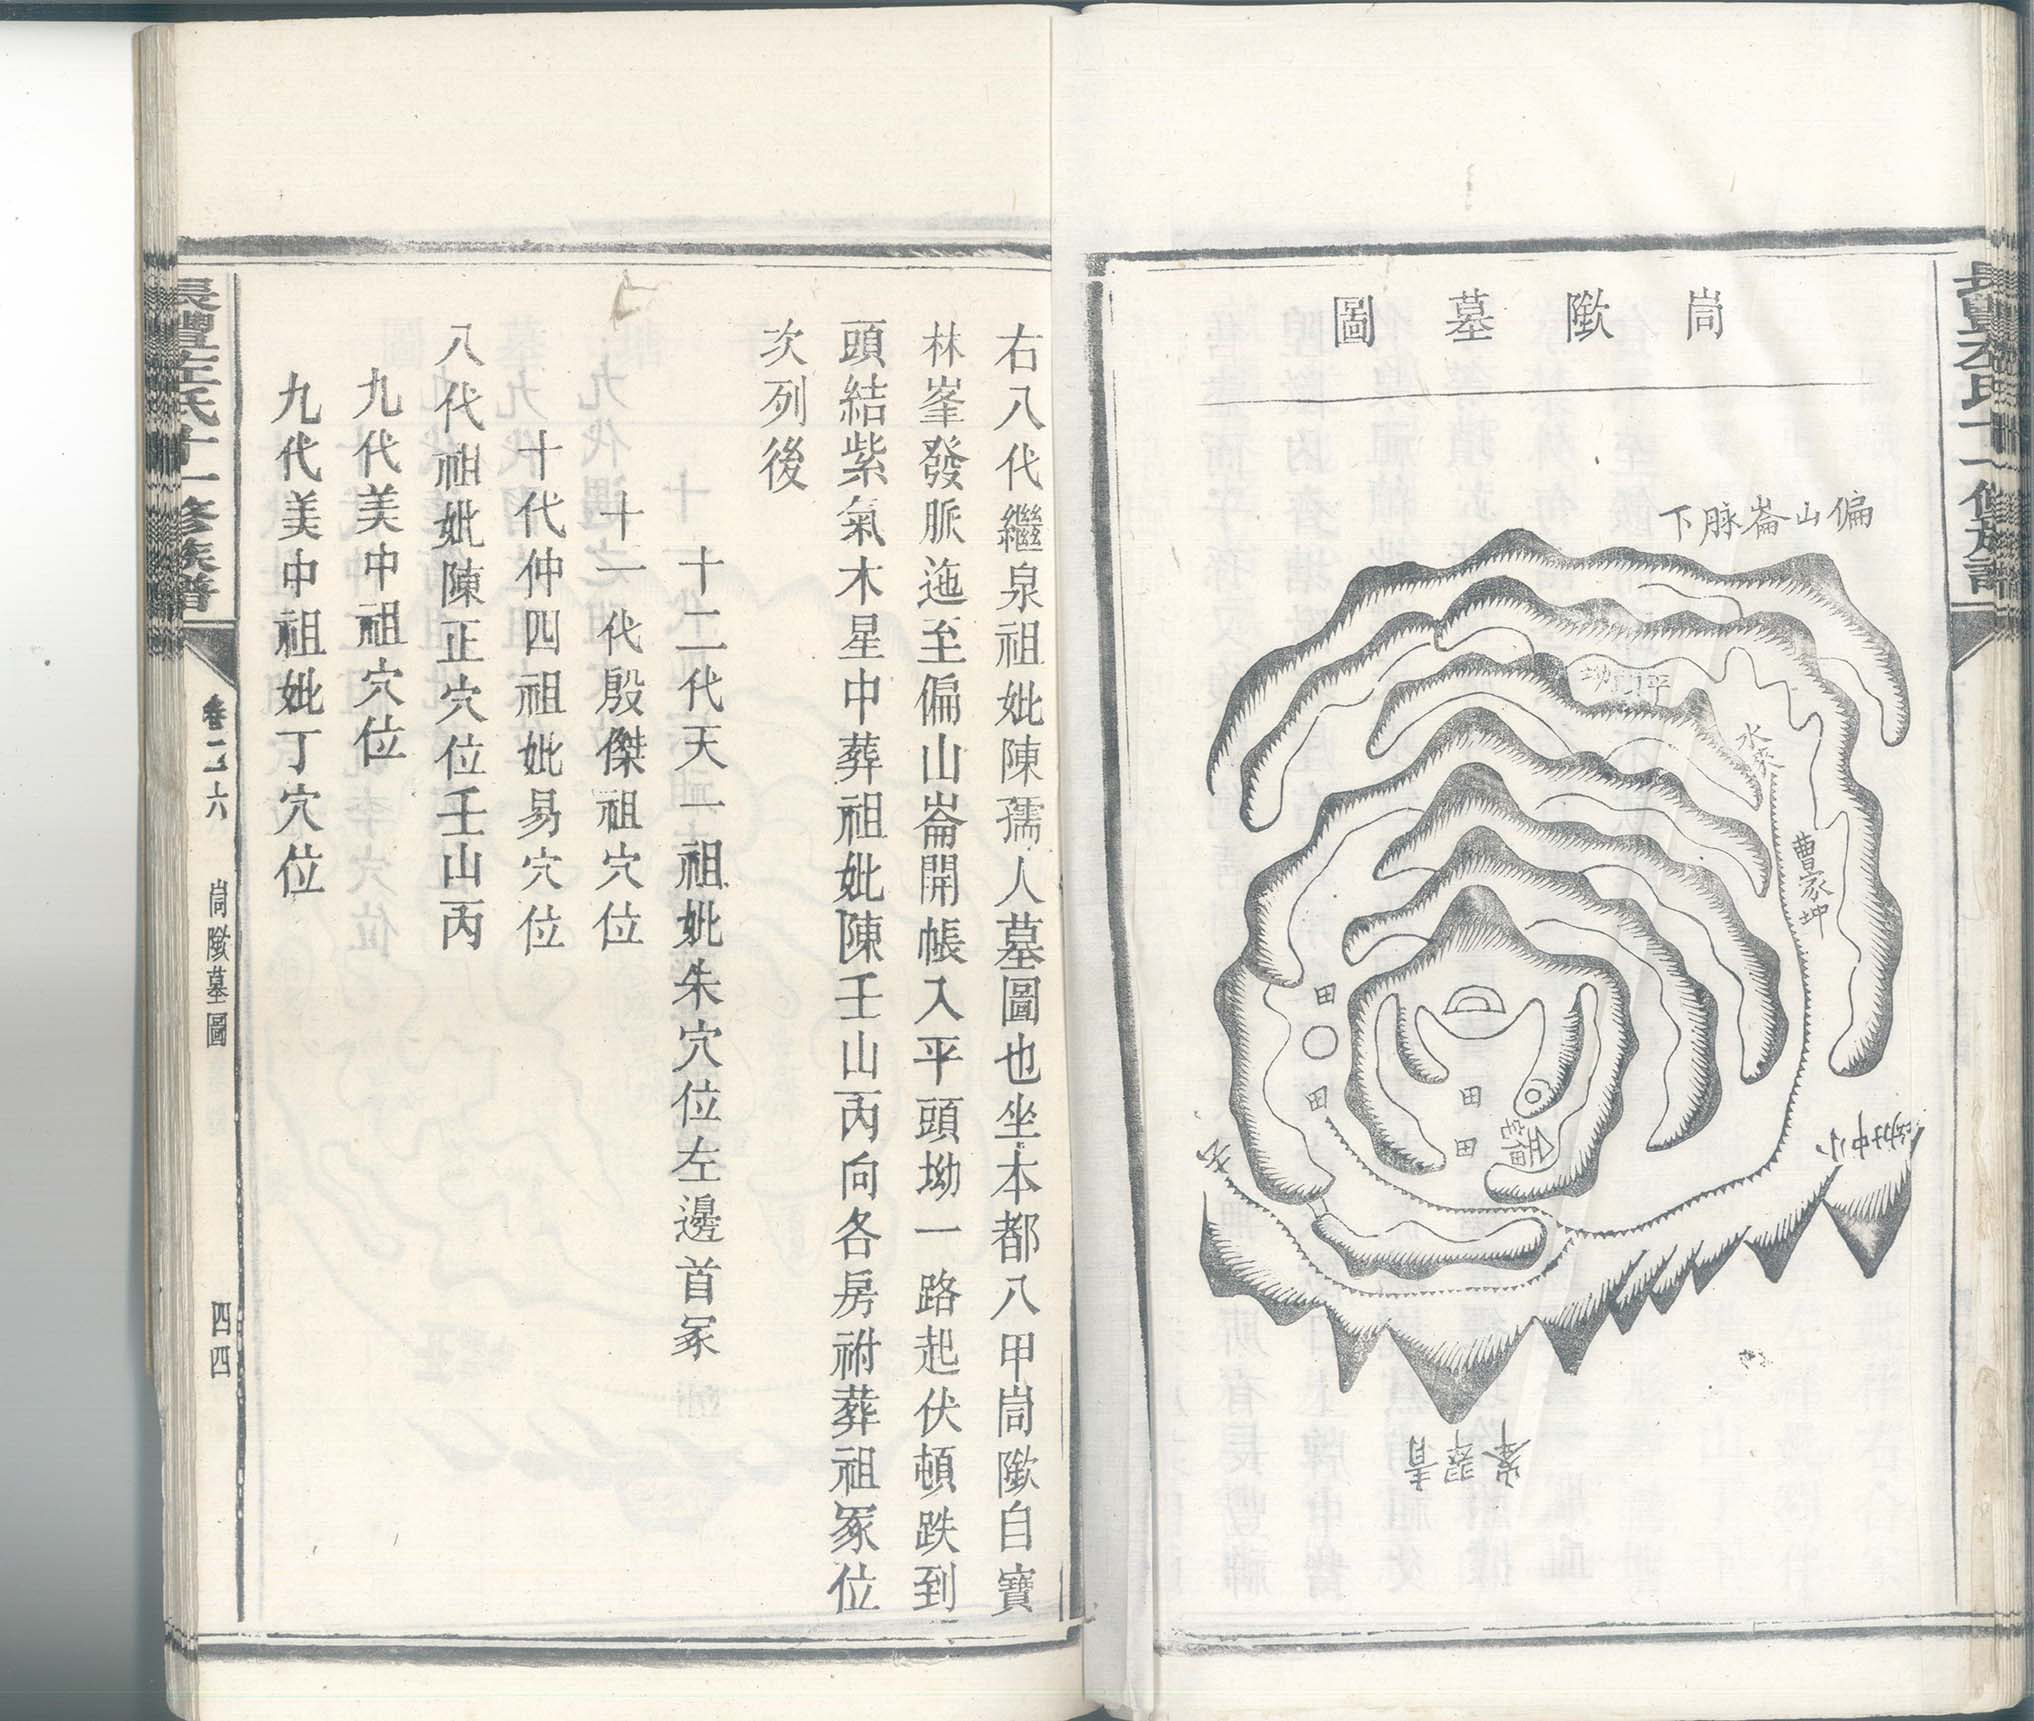 崗隞墓圖
偏山崙脉下
平頭坳
水來
曹家坤
小中坳
田
田
田
田
青翠峯
右八代繼泉祖妣陳孺人墓圖也坐本都八甲崗隞自寶
林峯發脈迤至偏山崙開帳入平頭坳一路起伏頓跌到
頭結紫氣木星中葬祖妣陳壬山丙向各房祔葬祖冢位
次列後
十二代天一祖妣朱穴位左邊首冢
十一代殷傑祖穴位
十代仲四祖妣易穴位
八代祖妣陳正穴位壬山丙
九代美中祖穴位
九代美中祖妣丁穴位
氏十一修族譜
崗隞墓圖
四四